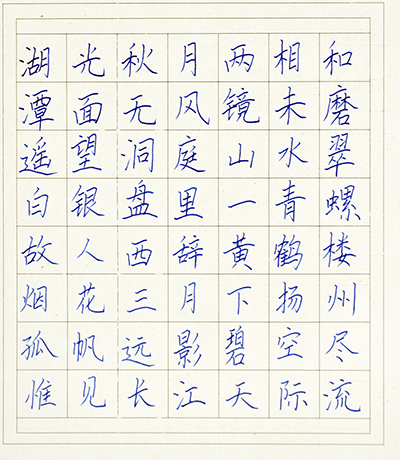 湖光秋月两相和
潭面无风镜未磨
遥望洞庭山水翠
白银盘里一青螺
故人西辞黄鹤楼
烟花三月下扬州
孤帆远影碧空尽
惟见长江天际流